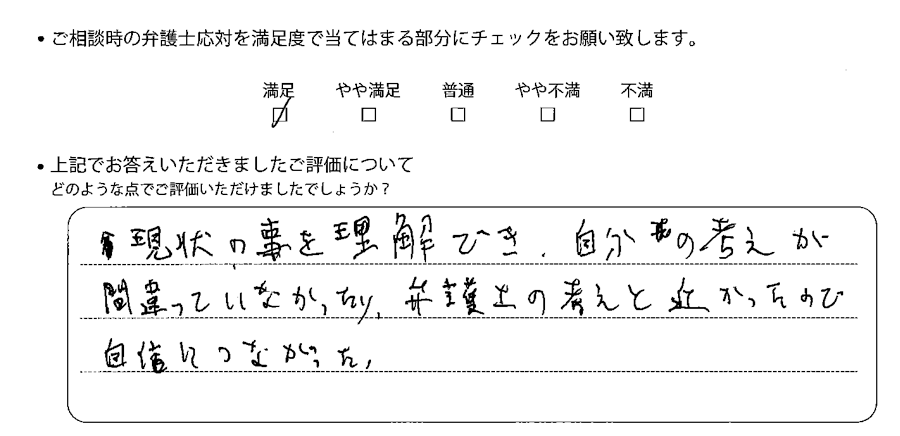 • ご相談時の弁護士応対を満足度で当てはまる部分にチェックをお願い致します。
満足 やや満足 普通 やや不満 不満
• 上記でお答えいただきましたご評価について
どのような点でご評価いただけましたでしょうか？
現状の事を理解でき、自分の考えが
間違っていなかったり、弁護士の考えと近かったので
自信につながった。